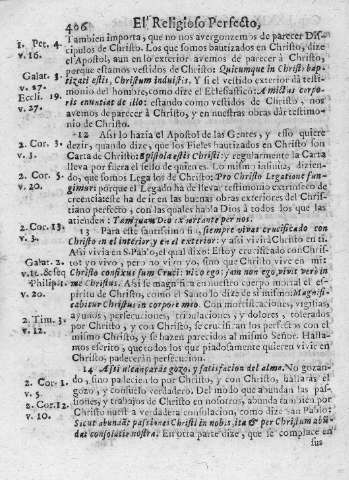 406 El Religioso Perfecto,
Tambien importa, que no nos avergonzemos de parecer Dis-
1. Pet. 4. cipulos de Christo. Los que somos bautizados en Christo, dize
v. 16. el Apostol, aun en lo exterior avemos de parecer à Christo,
porque estamos vestidos de Christo: Quicumque in Christo bap-
Galat. 3. tizati estis, Christum induistis. Y si el vestido exterior dà testi-
v. 27. monio del hombre, como dize el Eclesiastico: Amictus corpo-
Eccli. 19. ris enuntiat de illo: estando como vestidos de Christo, nos
v. 27. avemos de parecer à Christo, y en nuestras obras dàr testimo-
nio de Christo.
12 Assi lo hazia el Apostol de las Gentes, y esso quiere
2. Cor. 3. dezir, quando dize, que los Fieles bautizados en Christo son
v. 3. Carta de Christo: Epistola estis Christi; y regularmente la Carta
lleva por fuera el sello de quien es. Lo mismo insinúa, dizien-
2. Cor. 5. do, que somos Legados de Christo: Pro Christo Legatione fun-
v. 20. gimur: porque el Legado ha de llevar testimonio extrinseco de
creencia: este ha de ir en las buenas obras exteriores del Chris-
tiano perfecto, con las quales habla Dios à todos los que las
atienden: Tamquam Deo exhortante per nos.
2. Cor. 13. 13 Para este santissimo fin, siempre vivas crucificado con
v. 3. Christo en el interior, y en el exterior: y assi vivirà Christo en ti.
Assi vivia en S. Pablo, el qual dize: Estoy crucificado con Chris-
Galat. 2. tot yo vivo, pero no vivo yo, sino que Christo vive en mi:
Christo confixus sum Cruci: vivo ego: jam non ego, vivit verò in
Philip. 1. me Christus. Assi se magnifica en nuestro cuerpo mortal el es-
v. 20. piritu de Christo, como el Santo lo dize de sì mismo: Magnifi-
cabitur Christus in corpore meo. Con mortificaciones, vigilias,
ayunos, persecuciones, tribulaciones, y dolores, tolerados
2. Tim. 3. por Christo, y con Christo, se crucifican los perfectos con el
v. 12. mismo Christo, y se hazen parecidos al mismo Señor. Hallamos
escrito, que todos los que piadosamente quieren vivir en
Christo, padecerán persecucion.
14 Assi alcançaràs gozo, y satisfacion del alma. No gozan-
2. Cor. 1. do, sino padeciendo por Christo, y con Christo, hallaràs el
v. 5. gozo, y consuelo verdadero. Del modo que abundan las pas-
siones, y trabajos de Christo en nosotros, abunda tambien por
2. Cor. 12. Christo nuestra verdadera consolacion, como dize san Pablo:
v. 10. Sicut abundāt passiones Christi in nobis, ita & per Christum abun-
dat consolatio nostra. En otra parte dize, que se complace en
sus